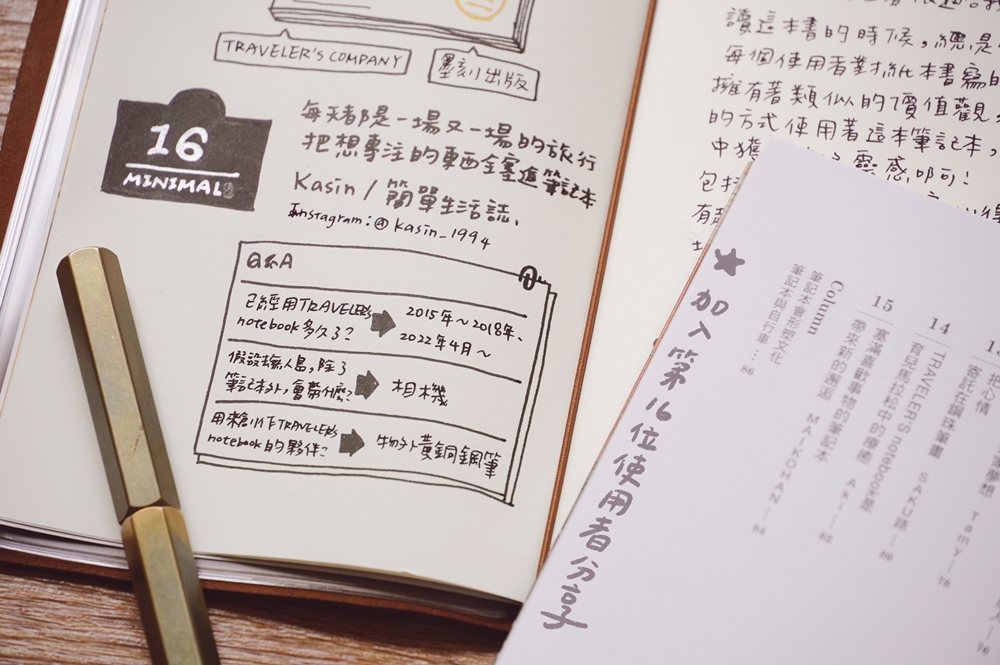 TRAVELER'S COMPANY
墨刻出版
16
MINIMAL
每天都是一場又一場的旅行
把想專注的東西全塞進筆記本
Kasin / 簡單生活誌、
Instagram:@kasin_1994
Q&A
已經用TRAVELER'S
notebook多久了?
2015年~2018年、
2022年4月~
假設去無人島,除了
筆記本外,會帶什麼?
相機
用來創作TRAVELER'S
notebook的夥伴?
物外黃銅鋼筆
讀這本書的時候,總是
每個使用者對於紙本書寫的
擁有著類似的價值觀,
的方式使用著這本筆記本,
中獲
靈感呢可!
★加入第16位使用者分享
寄託在鋼珠筆畫 SAKU醬 78
14
TRAVELER'S notebook是
育兒馬拉松中的療癒 Aki 80
15
塞滿喜歡事物的筆記本
帶來新的邂逅 MAIKOHAN 84
Column
筆記本會形塑文化
筆記本與自行車 86